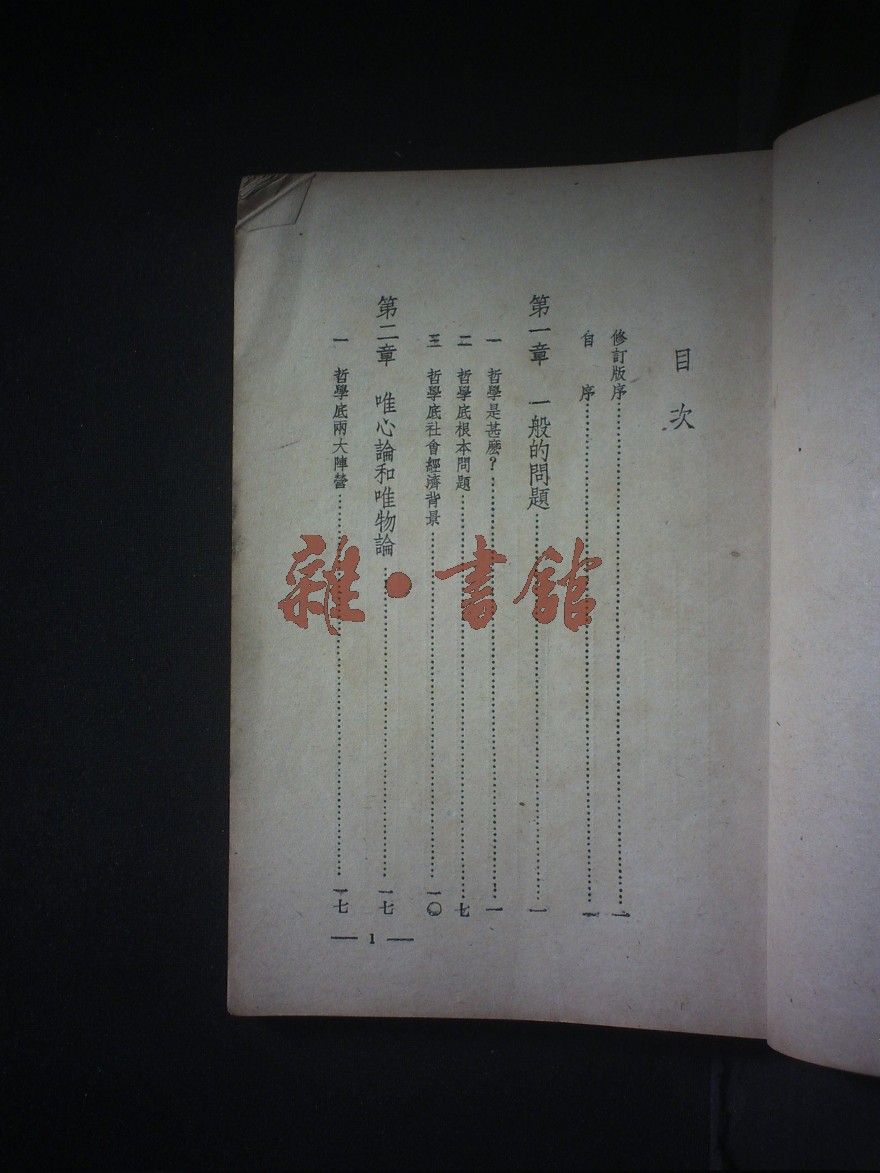 目次
修訂版序……一
自序……一
第一章 一般的問題……一
一 哲學是甚麽？……一
二 哲學底根本問題……七
三 哲學底社會經濟背景……一〇
第二章 唯心論和唯物論……一七
一 哲學底兩大陣營……一七
— 1 —
雜·書館